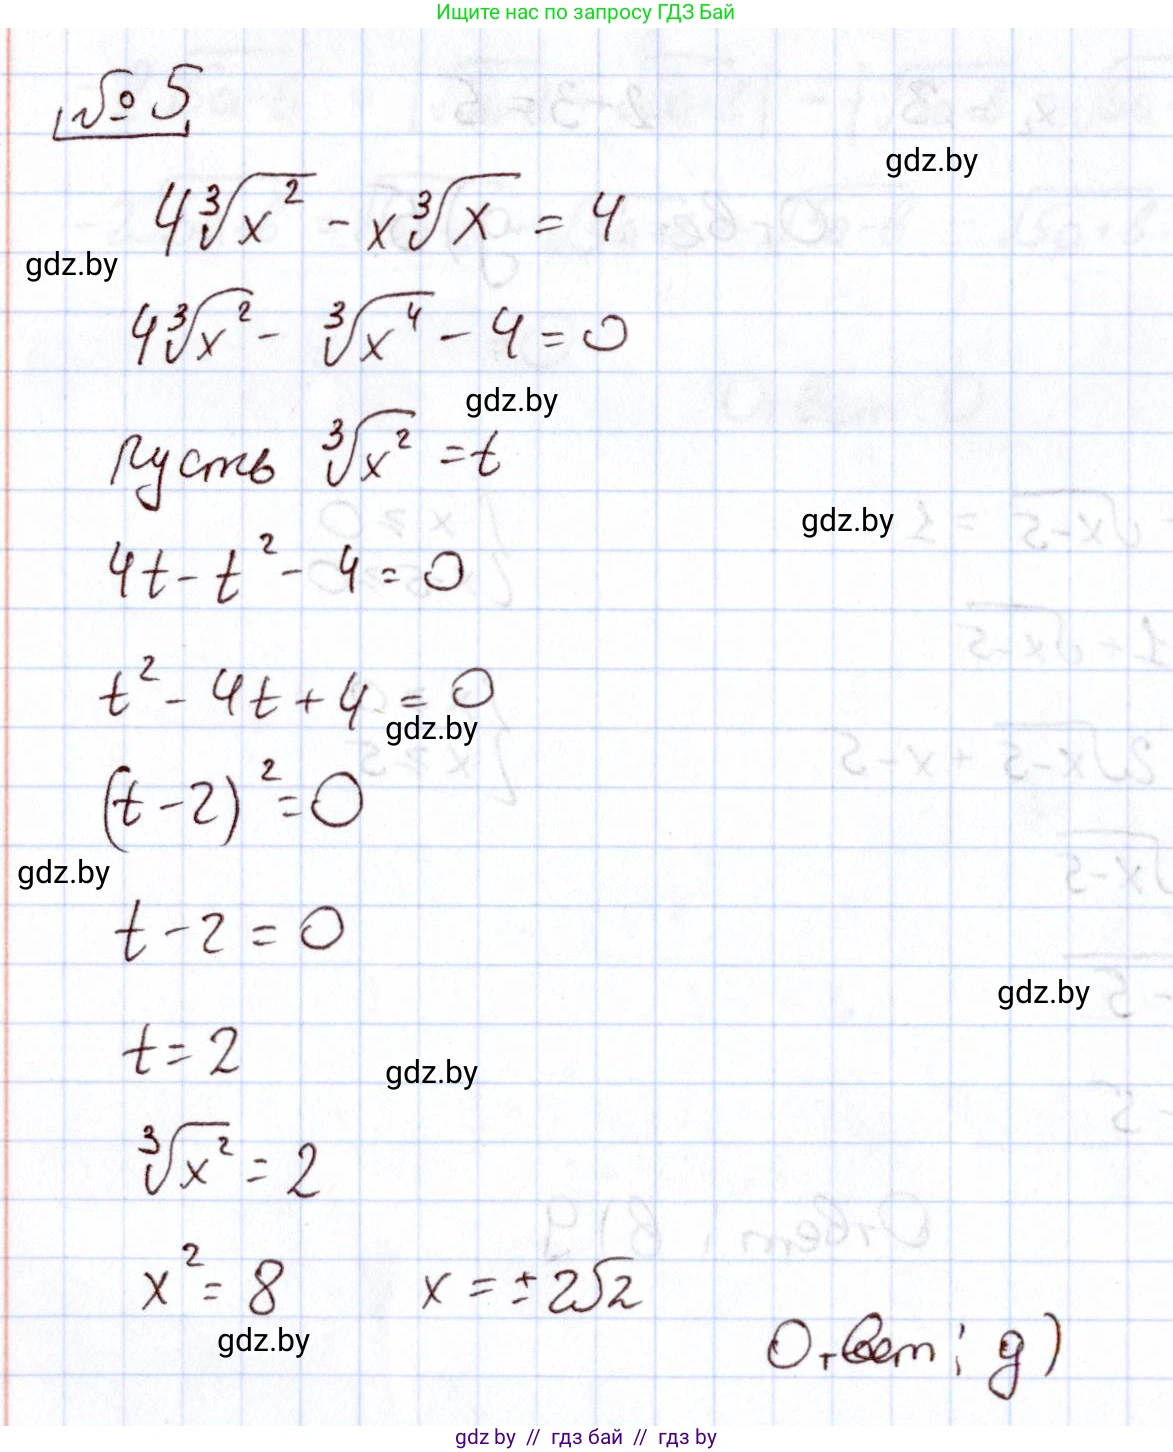 Ищите нас по запросу ГДЗ Бай
№ 5
gdz.by
4∛x² - x∛x = 4
gdz.by
4∛x² - ∛x⁴ - 4 = 0
gdz.by
Пусть ∛x² = t
gdz.by
4t - t² - 4 = 0
t² - 4t + 4 = 0
gdz.by
(t - 2)² = 0
gdz.by
t - 2 = 0
gdz.by
t = 2
gdz.by
∛x² = 2
x² = 8 x = ± 2√2
gdz.by
Ответ: д)
gdz by // гдз бай // гдз by